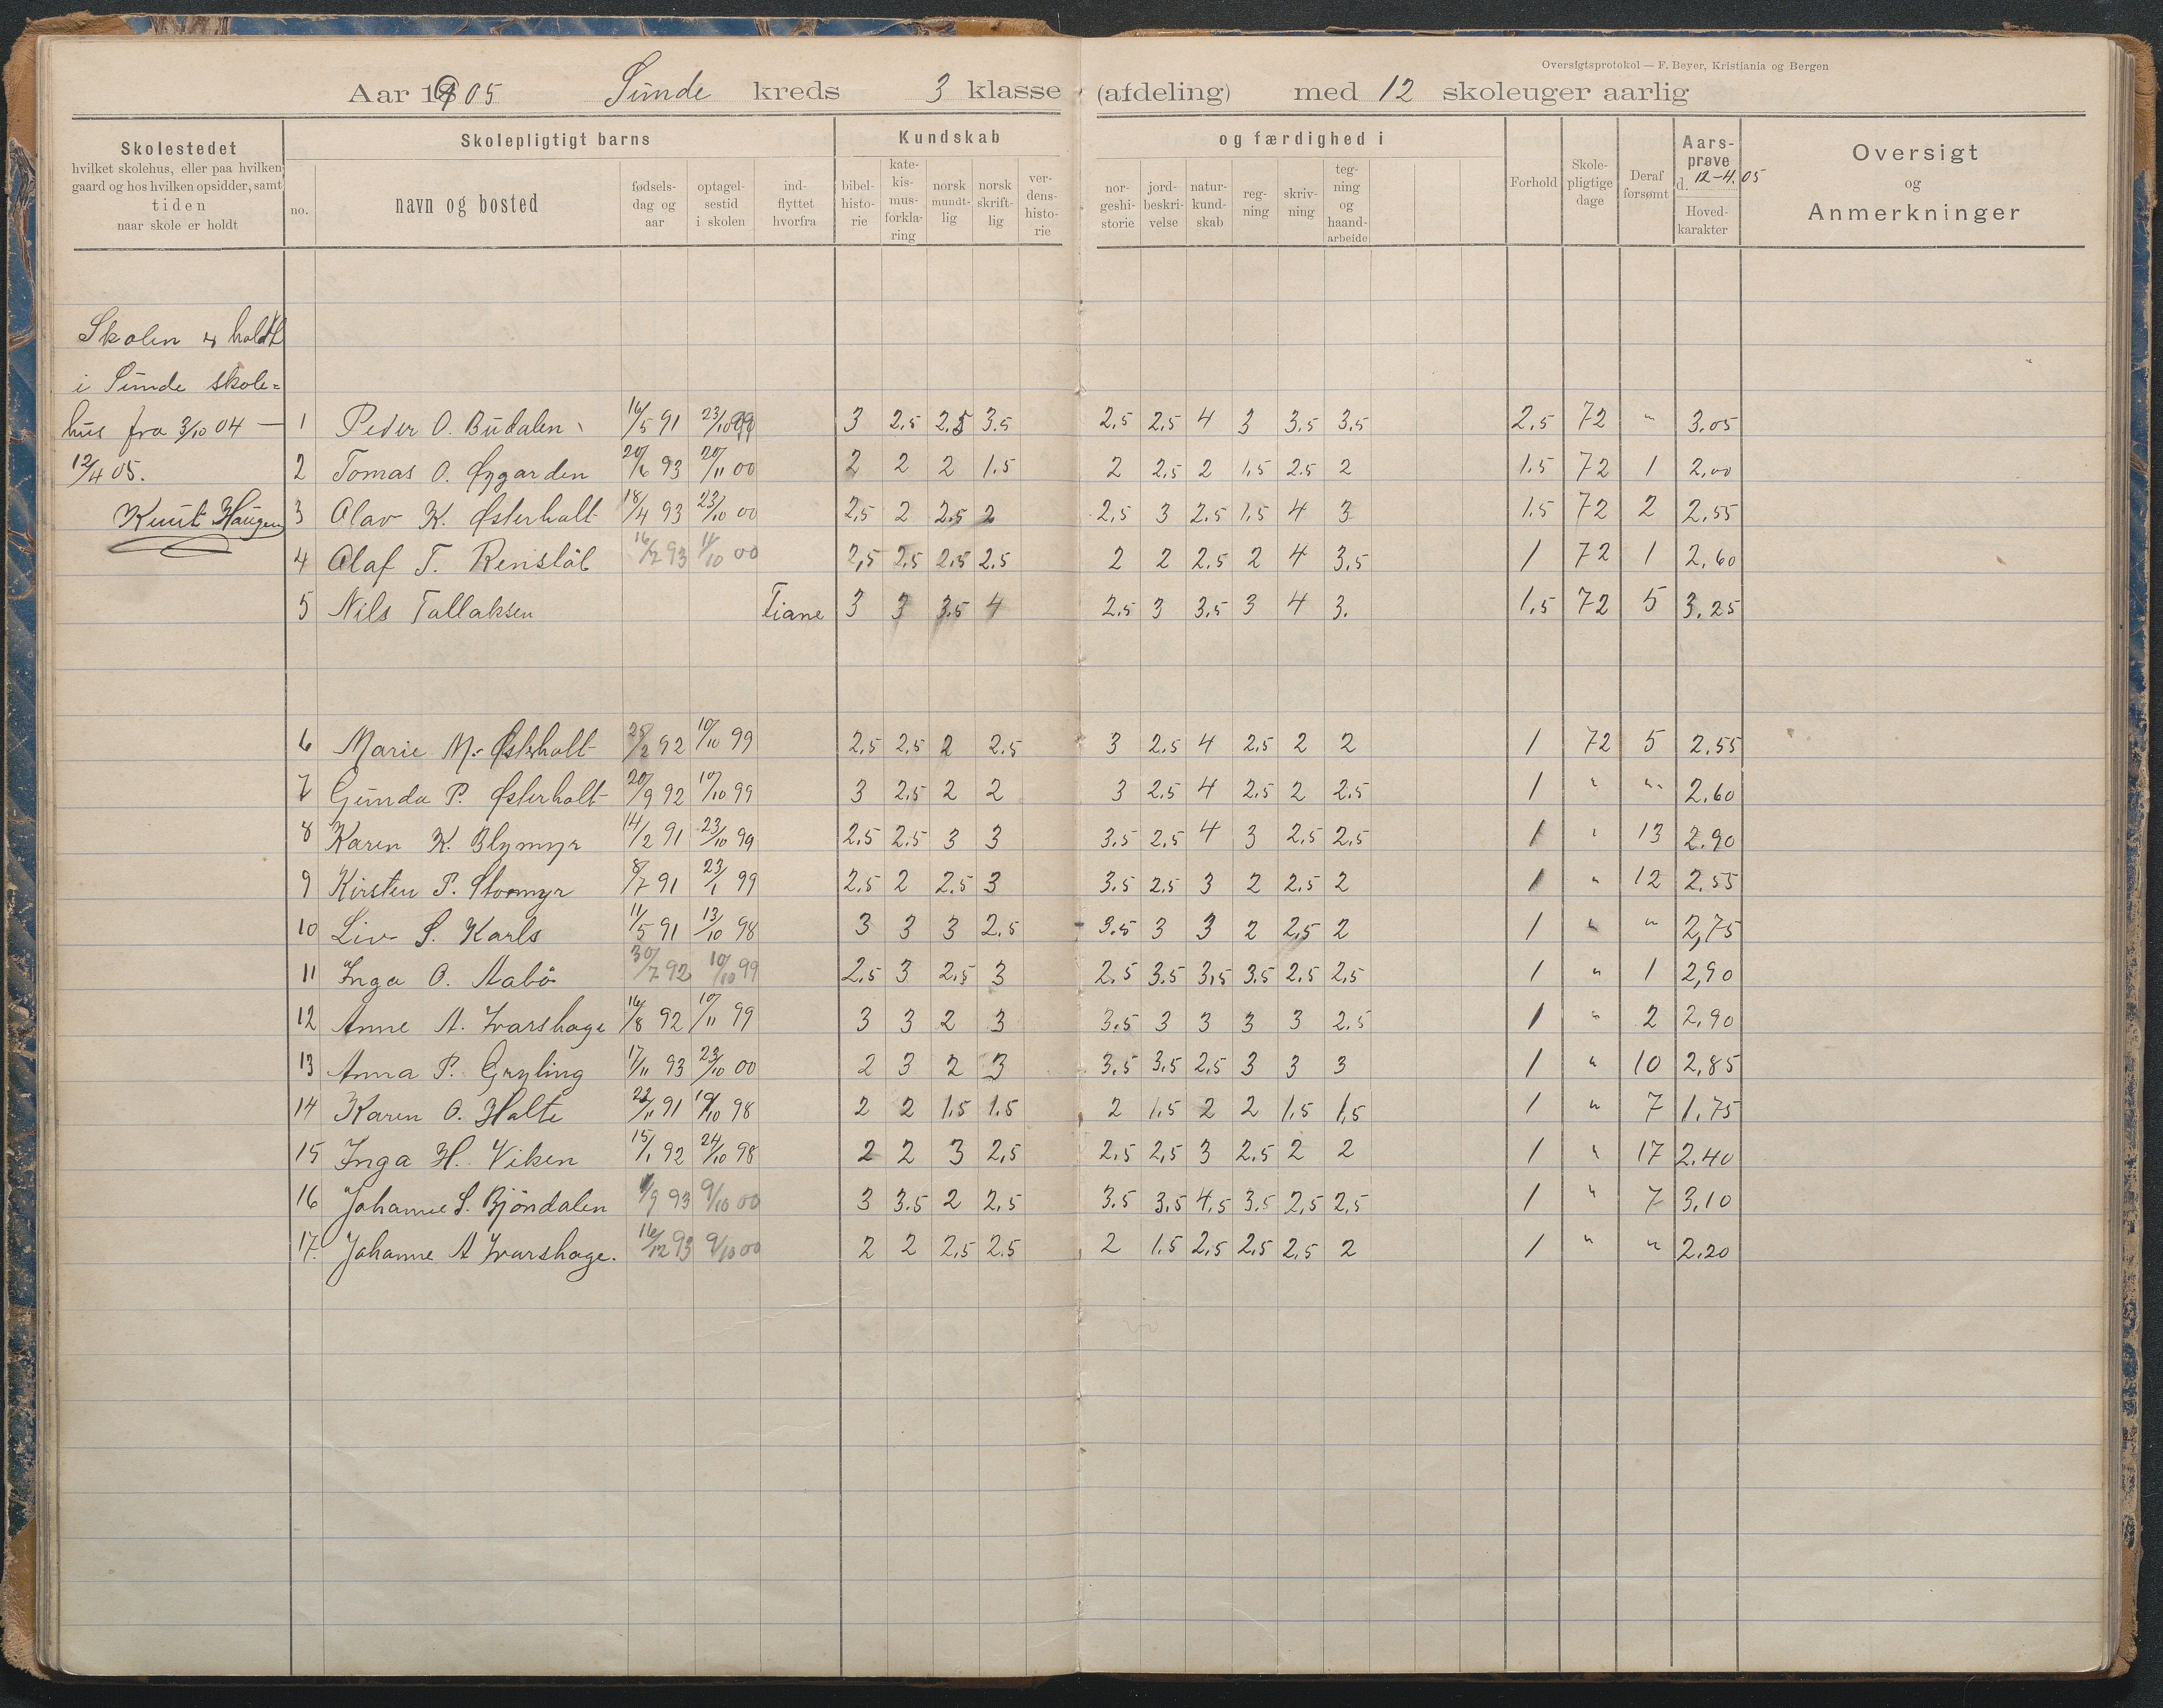 Oversigtsprotokol — F. Beyer, Kristiania og Bergen
Aar 1905 Sunde kreds 3 klasse (afdeling) med 12 skoleuger aarlig
Skolestedet
hvilket skolehus, eller paa hvilken
gaard og hos hvilken opsidder, samt
tiden
naar skole er holdt
Skolepligtigt barns
no. navn og bosted
fødsels-
dag og
aar
optagel-
sestid
i skolen
ind-
flyttet
hvorfra
Kundskab og færdighed i
bibel-
histo-
rie
kate-
kis-
mus-
forkla-
ring
norsk
mundt-
lig
norsk
skrift-
lig
ver-
dens-
histo-
rie
nor-
geshi-
storie
jord-
beskri-
velse
natur-
kund-
skab
reg-
ning
skriv-
ning
teg-
ning
og
haand-
arbeide
Forhold
Skole-
pligtige
dage
Deraf
forsømt
Aars-
prøve
d. 12-4.05
Hoved-
karakter
Oversigt
og
Anmerkninger
Skolen er holdt
i Sunde skole=
hus fra 3/10 04 —
12/4 05.
Knut Haugen
1 Peder O. Budalen 16/5 91 23/10 99 3 2.5 2.5 3.5 2.5 2.5 4 3 3.5 3.5 2.5 72 " 3.05
2 Tomas O. Øygarden 20/6 93 20/11 00 2 2 2 1.5 2 2.5 2 1.5 2.5 2 1.5 72 1 2.00
3 Olav K. Østerholt 18/4 93 23/10 00 2.5 2 2.5 2 2.5 3 2.5 1.5 4 3 1.5 72 2 2.55
4 Olaf T. Renslöt 16/7 93 11/10 00 2,5 2.5 2.5 2.5 2 2 2.5 2 4 3.5 1 72 1 2.60
5 Nils Tallaksen Tiane 3 3 3.5 4 2.5 3 3.5 3 4 3. 1.5 72 5 3.25
6 Marie M. Østerholt 25/2 92 10/10 99 2.5 2.5 2 2.5 3 2.5 4 2.5 2 2 1 72 5 2.55
7 Gunda P. Østerholt 20/9 92 10/10 99 3 2.5 2 2 3 2.5 4 2.5 2 2.5 1 " " 2.60
8 Karen K. Blymyr 14/2 91 23/10 99 2.5 2.5 3 3 3.5 2.5 4 3 2.5 2.5 1 " 13 2.90
9 Kirsten P. Stormyr 8/7 91 23/1 99 2.5 2 2.5 3 3.5 2.5 3 2 2.5 2 1 " 12 2.55
10 Liv S. Karls 11/5 91 13/10 98 3 3 3 2.5 3.5 3 3 2 2,5 2 1 " " 2,75
11 Inga O. Aabö 30/7 92 10/10 99 2.5 3 2.5 3 2.5 3.5 3,5 3.5 2.5 2,5 1 " 1 2,90
12 Anne A. Ivarshage 16/8 92 10/11 99 3 3 2 3 3.5 3 3 3 3 2.5 1 " 2 2.90
13 Anna P. Gryting 17/11 93 23/10 00 2 3 2 3 3.5 3.5 2,5 3 3 3 1 " 10 2,85
14 Karen O. Holte 22/11 91 19/10 98 2 2 1.5 1.5 2 1.5 2 2 1.5 1,5 1 " 7 1.75
15 Inga H. Viken 15/1 92 24/10 98 2 2 3 2,5 2.5 2,5 3 2.5 2 2 1 " 17 2.40
16 Johanne S. Bjöndalen 1/9 93 9/10 00 3 3.5 2 2,5 3.5 3,5 4,5 3.5 2,5 2,5 1 " 7 3,10
17. Johanne A Ivarshage. 16/12 93 9/10 00 2 2 2,5 2.5 2 1.5 2,5 2,5 2,5 2 1 " " 2.20